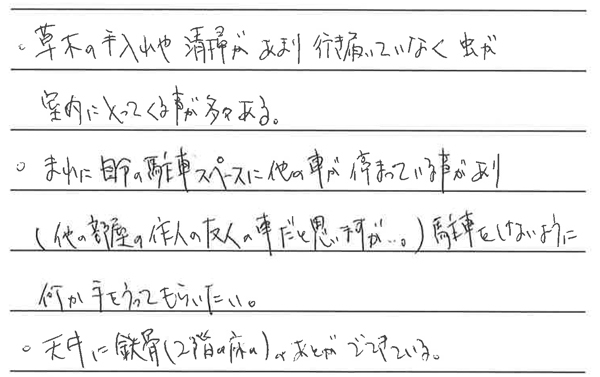 。草木の手入れや清掃があまり行き届いていなく虫が
室内に入ってくる事が多々ある。
○ まれに自分の駐車スペースに他の車が停まっている事があり
(他の部屋の住人の友人の車だと思いますが…。)駐車をしないように
何か手をうってもらいたい。
○ 天井に鉄骨(2階の床の)のあとがでてきている。